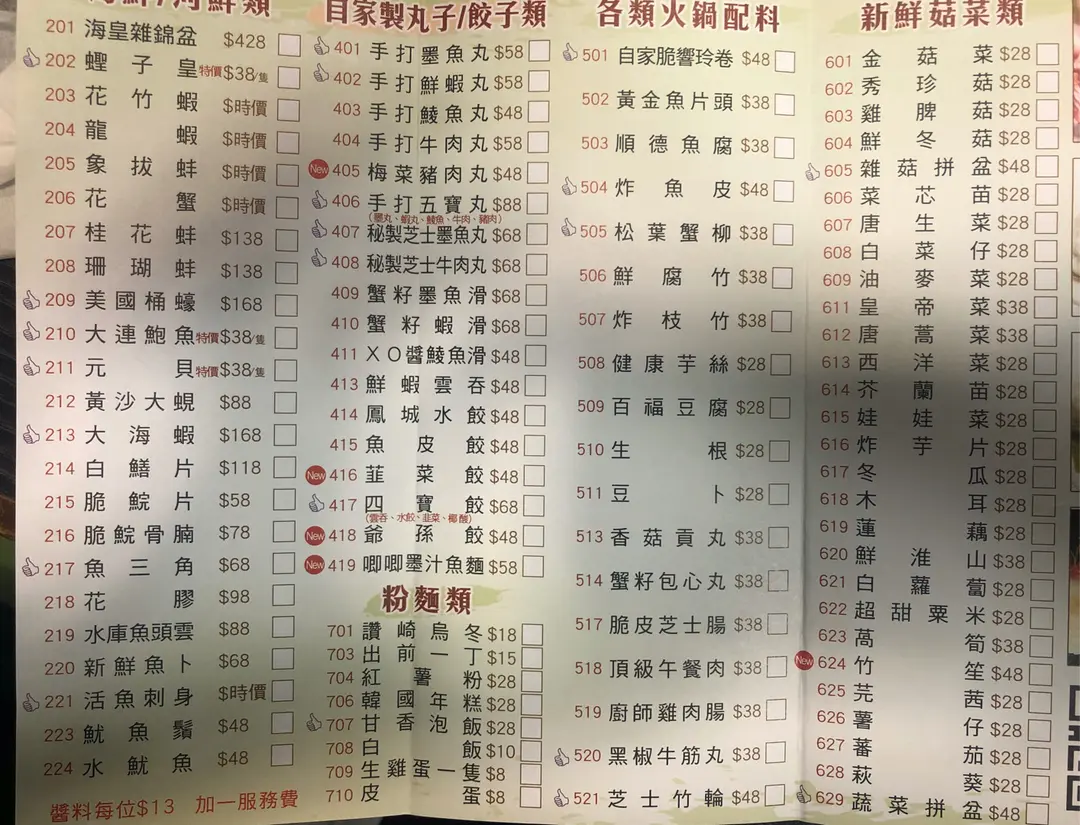 海鮮/河鮮類
201 海皇雜錦盆 $428
202 蟶子皇 特價$38/隻
203 花竹蝦 $時價
204 龍蝦 $時價
205 象拔蚌 $時價
206 花蟹 $時價
207 桂花蚌 $138
208 珊瑚蚌 $138
209 美國桶蠔 $168
210 大連鮑魚 特價$38/隻
211 元貝 特價$38/隻
212 黃沙大蜆 $88
213 大海蝦 $168
214 白鱔片 $118
215 脆鯇片 $58
216 脆鯇骨腩 $78
217 魚三角 $68
218 花膠 $98
219 水庫魚頭雲 $88
220 新鮮魚卜 $68
221 活魚刺身 $時價
223 魷魚鬚 $48
224 水魷魚 $48
醬料每位$13 加一服務費
自家製丸子/餃子類
401 手打墨魚丸 $58
402 手打鮮蝦丸 $58
403 手打鯪魚丸 $48
404 手打牛肉丸 $58
New 405 梅菜豬肉丸 $48
406 手打五寶丸 $88
(墨丸、蝦丸、鯪魚、牛肉、豬肉)
407 秘製芝士墨魚丸 $68
408 秘製芝士牛肉丸 $68
409 蟹籽墨魚滑 $68
410 蟹籽蝦滑 $68
411 XO醬鯪魚滑 $48
413 鮮蝦雲吞 $48
414 鳳城水餃 $48
415 魚皮餃 $48
New 416 韮菜餃 $48
417 四寶餃 $68
New 418 爺孫餃 $48
New 419 唧唧墨汁魚麵 $58
粉麵類
701 讚崎烏冬 $18
703 出前一丁 $15
704 紅薯粉 $28
706 韓國年糕 $28
707 甘香泡飯 $28
708 白飯 $10
709 生雞蛋一隻 $8
710 皮蛋 $8
各類火鍋配料
501 自家脆響玲卷 $48
502 黃金魚片頭 $38
503 順德魚腐 $38
504 炸魚皮 $48
505 松葉蟹柳 $38
506 鮮腐竹 $38
507 炸枝竹 $38
508 健康芋絲 $28
509 百福豆腐 $28
510 生根 $28
511 豆卜 $28
513 香菇貢丸 $38
514 蟹籽包心丸 $38
517 脆皮芝士腸 $38
518 頂級午餐肉 $38
519 廚師雞肉腸 $38
520 黑椒牛筋丸 $38
521 芝士竹輪 $48
新鮮菇菜類
601 金菇菜 $28
602 秀珍菇 $28
603 雞脾菇 $28
604 鮮冬菇 $28
605 雜菇拼盆 $48
606 菜芯苗 $28
607 唐生菜 $28
608 白菜仔 $28
609 油麥菜 $28
611 皇帝菜 $38
612 唐蒿菜 $38
613 西洋菜 $28
614 芥蘭苗 $28
615 娃娃菜 $28
616 炸芋片 $28
617 冬瓜 $28
618 木耳 $28
619 蓮藕 $28
620 鮮淮山 $38
621 白蘿蔔 $28
622 超甜粟米 $28
623 萵筍 $38
New 624 竹笙 $48
625 芫茜 $28
626 薯仔 $28
627 蕃茄 $28
628 萩葵 $28
629 蔬菜拼盆 $48